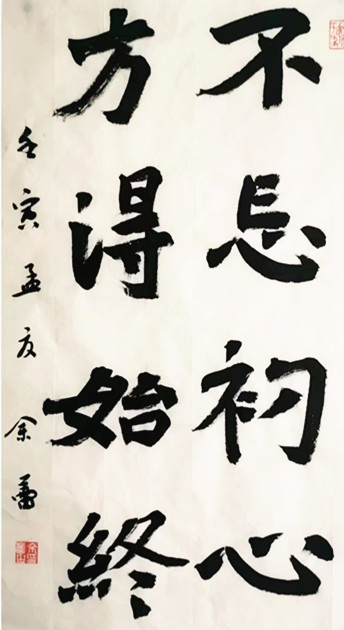 不忘初心
方得始終
壬寅孟夏余